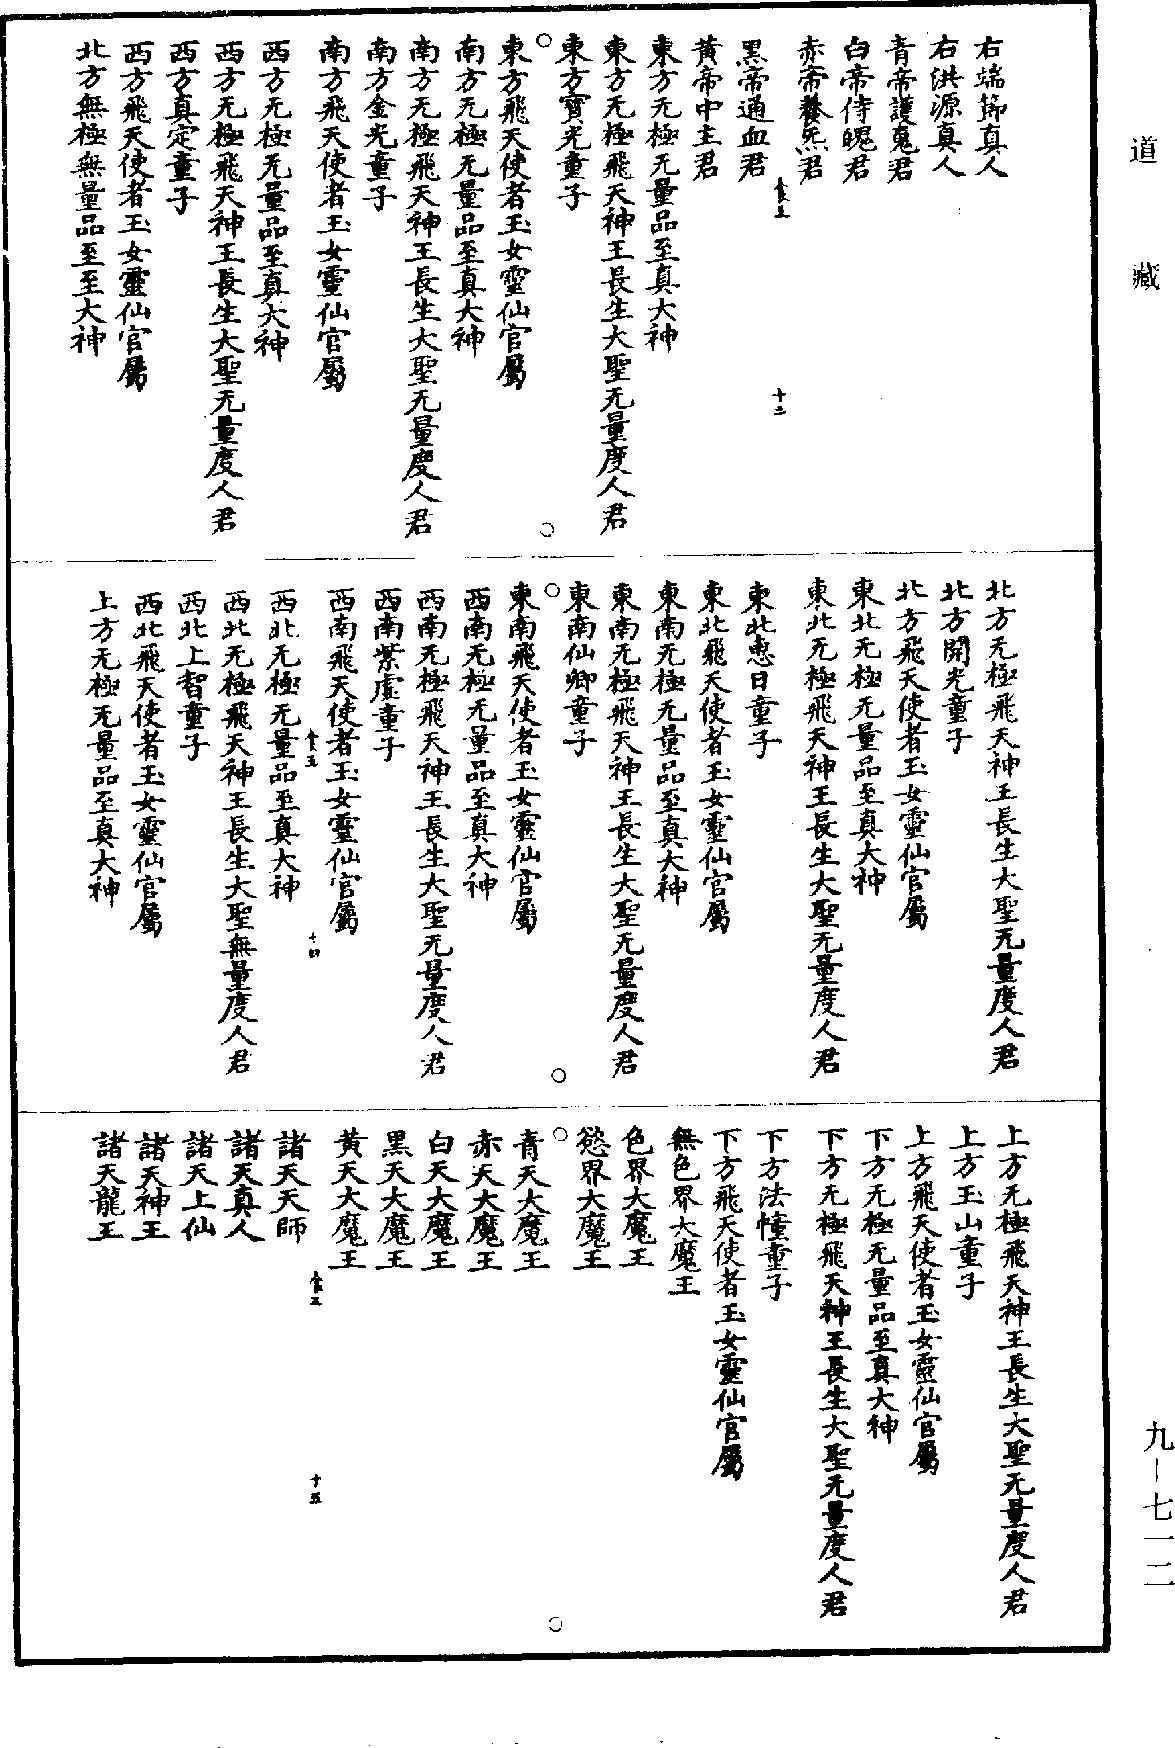 道藏
右端笻真人
右洪源真人
青帝護䰟君
白帝侍魄君
赤帝養炁君
黑帝通血君
黃帝中主君
東方无極无量品至真大神
東方无極飛天神王長生大聖无量度人君
東方寶光童子
東方飛天使者玉女靈仙官屬
南方无極无量品至真大神
南方无極飛天神王長生大聖无量度人君
南方金光童子
南方飛天使者玉女靈仙官屬
西方无極无量品至真大神
西方无極飛天神王長生大聖无量度人君
西方真定童子
西方飛天使者玉女靈仙官屬
北方無極無量品至至大神
北方无極飛天神王長生大聖无量度人君
北方開光童子
北方飛天使者玉女靈仙官屬
東北无極无量品至真大神
東北无極飛天神王長生大聖无量度人君
東北惠日童子
東北飛天使者玉女靈仙官屬
東南无極无量品至真大神
東南无極飛天神王長生大聖无量度人君
東南仙卿童子
東南飛天使者玉女靈仙官屬
西南无極无量品至真大神
西南无極飛天神王長生大聖无量度人君
西南紫虛童子
西南飛天使者玉女靈仙官屬
十四
西北无極无量品至真大神
西北无極飛天神王長生大聖無量度人君
西北上智童子
西北飛天使者玉女靈仙官屬
上方无極无量品至真大神
上方无極飛天神王長生大聖无量度人君
上方玉山童子
上方飛天使者玉女靈仙官屬
下方无極无量品至真大神
下方无極飛天神王長生大聖无量度人君
下方法憧童子
下方飛天使者玉女靈仙官屬
無色界大魔王
色界大魔王
慾界大魔王
青天大魔王
赤天大魔王
白天大魔王
黑天大魔王
黃天大魔王
十五
諸天天師
諸天真人
諸天上仙
諸天神王
諸天龍王
九－七一二